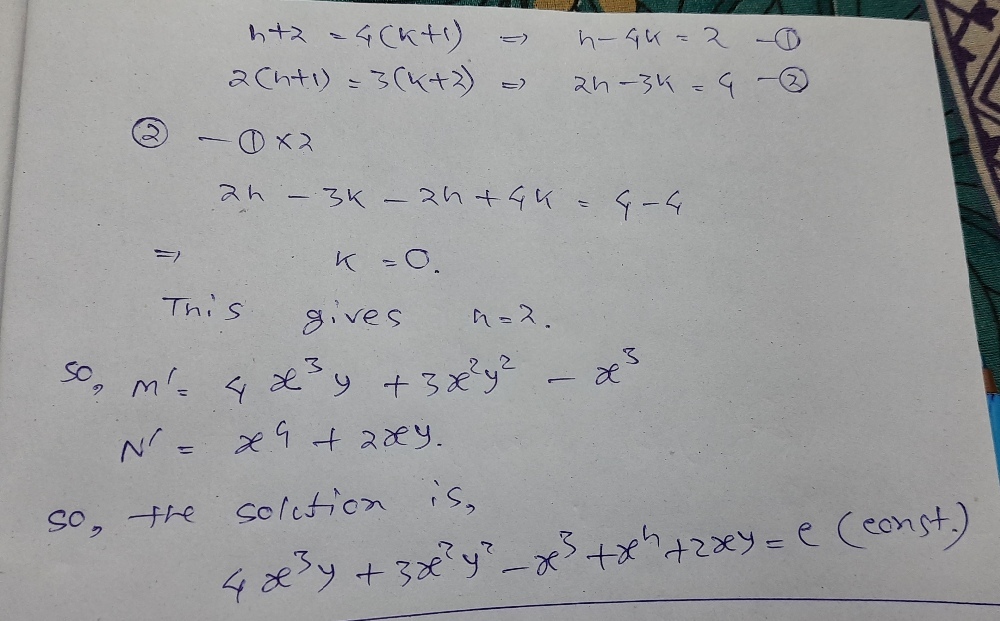 h+2 = 4(k+1) ⇒ h-4k = 2 -①
2(h+1) = 3(k+2) ⇒ 2h-3k = 4 -②
② - ① × 2
2h - 3k - 2h + 4k = 4-4
⇒ k = 0.
This gives h=2.
so, M' = 4x³y + 3x²y² - x³
N' = x⁴ + 2xy.
so, the solution is,
4x³y + 3x²y² - x³ + x⁴ + 2xy = c (const.)